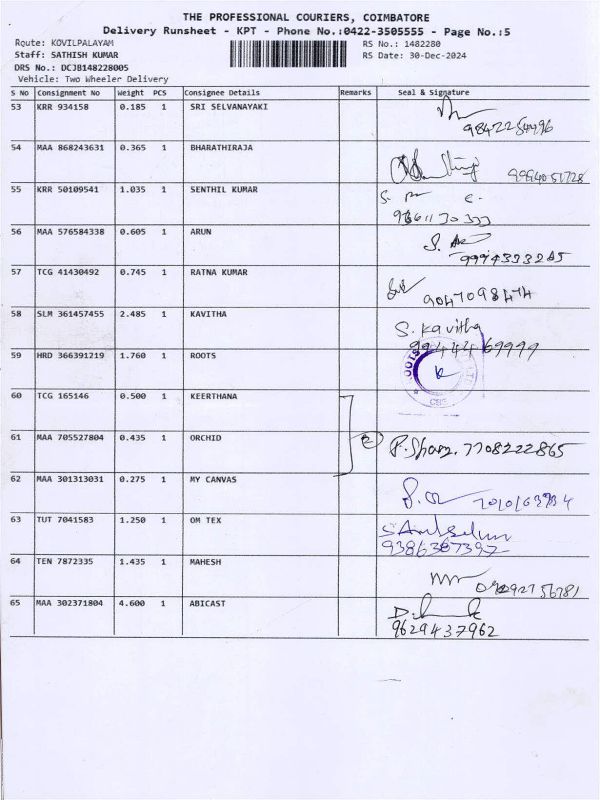 THE PROFESSIONAL COURIERS, COIMBATORE
Delivery Runsheet - KPT - Phone No.:0422-3505555 - Page No.:5
Route: KOVILPALAYAM RS No.: 1482280
Staff: SATHISH KUMAR RS Date: 30-Dec-2024
DRS No.: DCJB148228005
Vehicle: Two Wheeler Delivery
S No Consignment No Weight PCS Consignee Details Remarks Seal & Signature
53 KRR 934158 0.185 1 SRI SELVANAYAKI
9842254496
54 MAA 868243631 0.365 1 BHARATHIRAJA
9994051728
55 KRR 50109541 1.035 1 SENTHIL KUMAR
56 MAA 576584338 0.605 1 ARUN
9994333245
57 TCG 41430492 0.745 1 RATNA KUMAR
9047098474
58 SLM 361457455 2.485 1 KAVITHA S. Kavitha
9944469999
59 HRD 366391219 1.760 1 ROOTS ROOTS
CBE
60 TCG 165146 0.500 1 KEERTHANA
61 MAA 705527804 0.435 1 ORCHID 2 7708222865
62 MAA 301313031 0.275 1 MY CANVAS
63 TUT 7041583 1.250 1 OM TEX
9386387397
64 TEN 7872335 1.435 1 MAHESH
65 MAA 302371804 4.600 1 ABICAST
9629437962